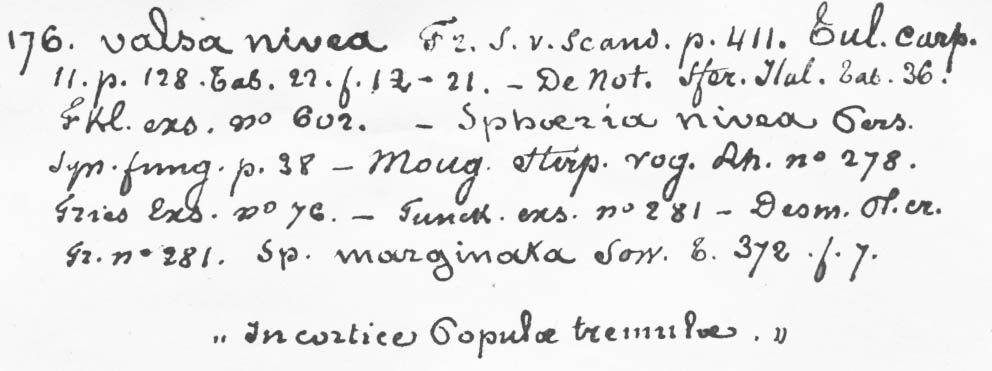 176. Valsa nivea Fr. S. v. Scand. p. 411. Tul. Carp.
11. p. 128. Tab. 22. f. 12 - 21. - De Not. Sfer. Ital. Tab. 36.
Fkl. exs. no 602. - Sphæria nivea Pers.
Syn. fung. p. 38 - Moug. Stirp. vog. Rh. no 278.
Fries Exs. no 76. - Funck. exs. no 281 - Desm. Pl. cr.
Fr. no 281. Sp. marginata Sow. t. 372. f. 7.
" In cortice Populæ tremulæ. "